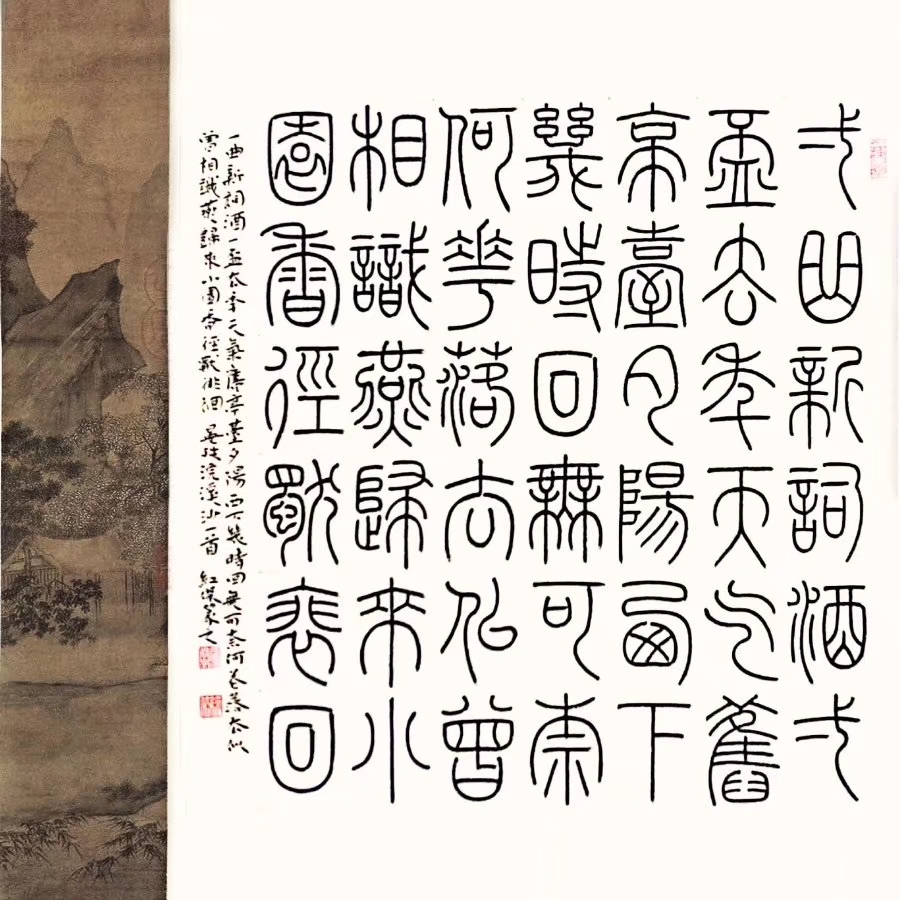 弌曲新詞酒弌
盃去年天气舊
亭臺夕陽西下
幾時回無可柰
何花落去佀曾
相識燕歸来小
園香徑獨裵回
一曲新詞酒一盃去年天氣舊亭臺夕陽西下幾時回無可奈何花落去似
曾相識燕歸來小園香徑獨徘徊 晏殊浣溪沙一首 紅篆之